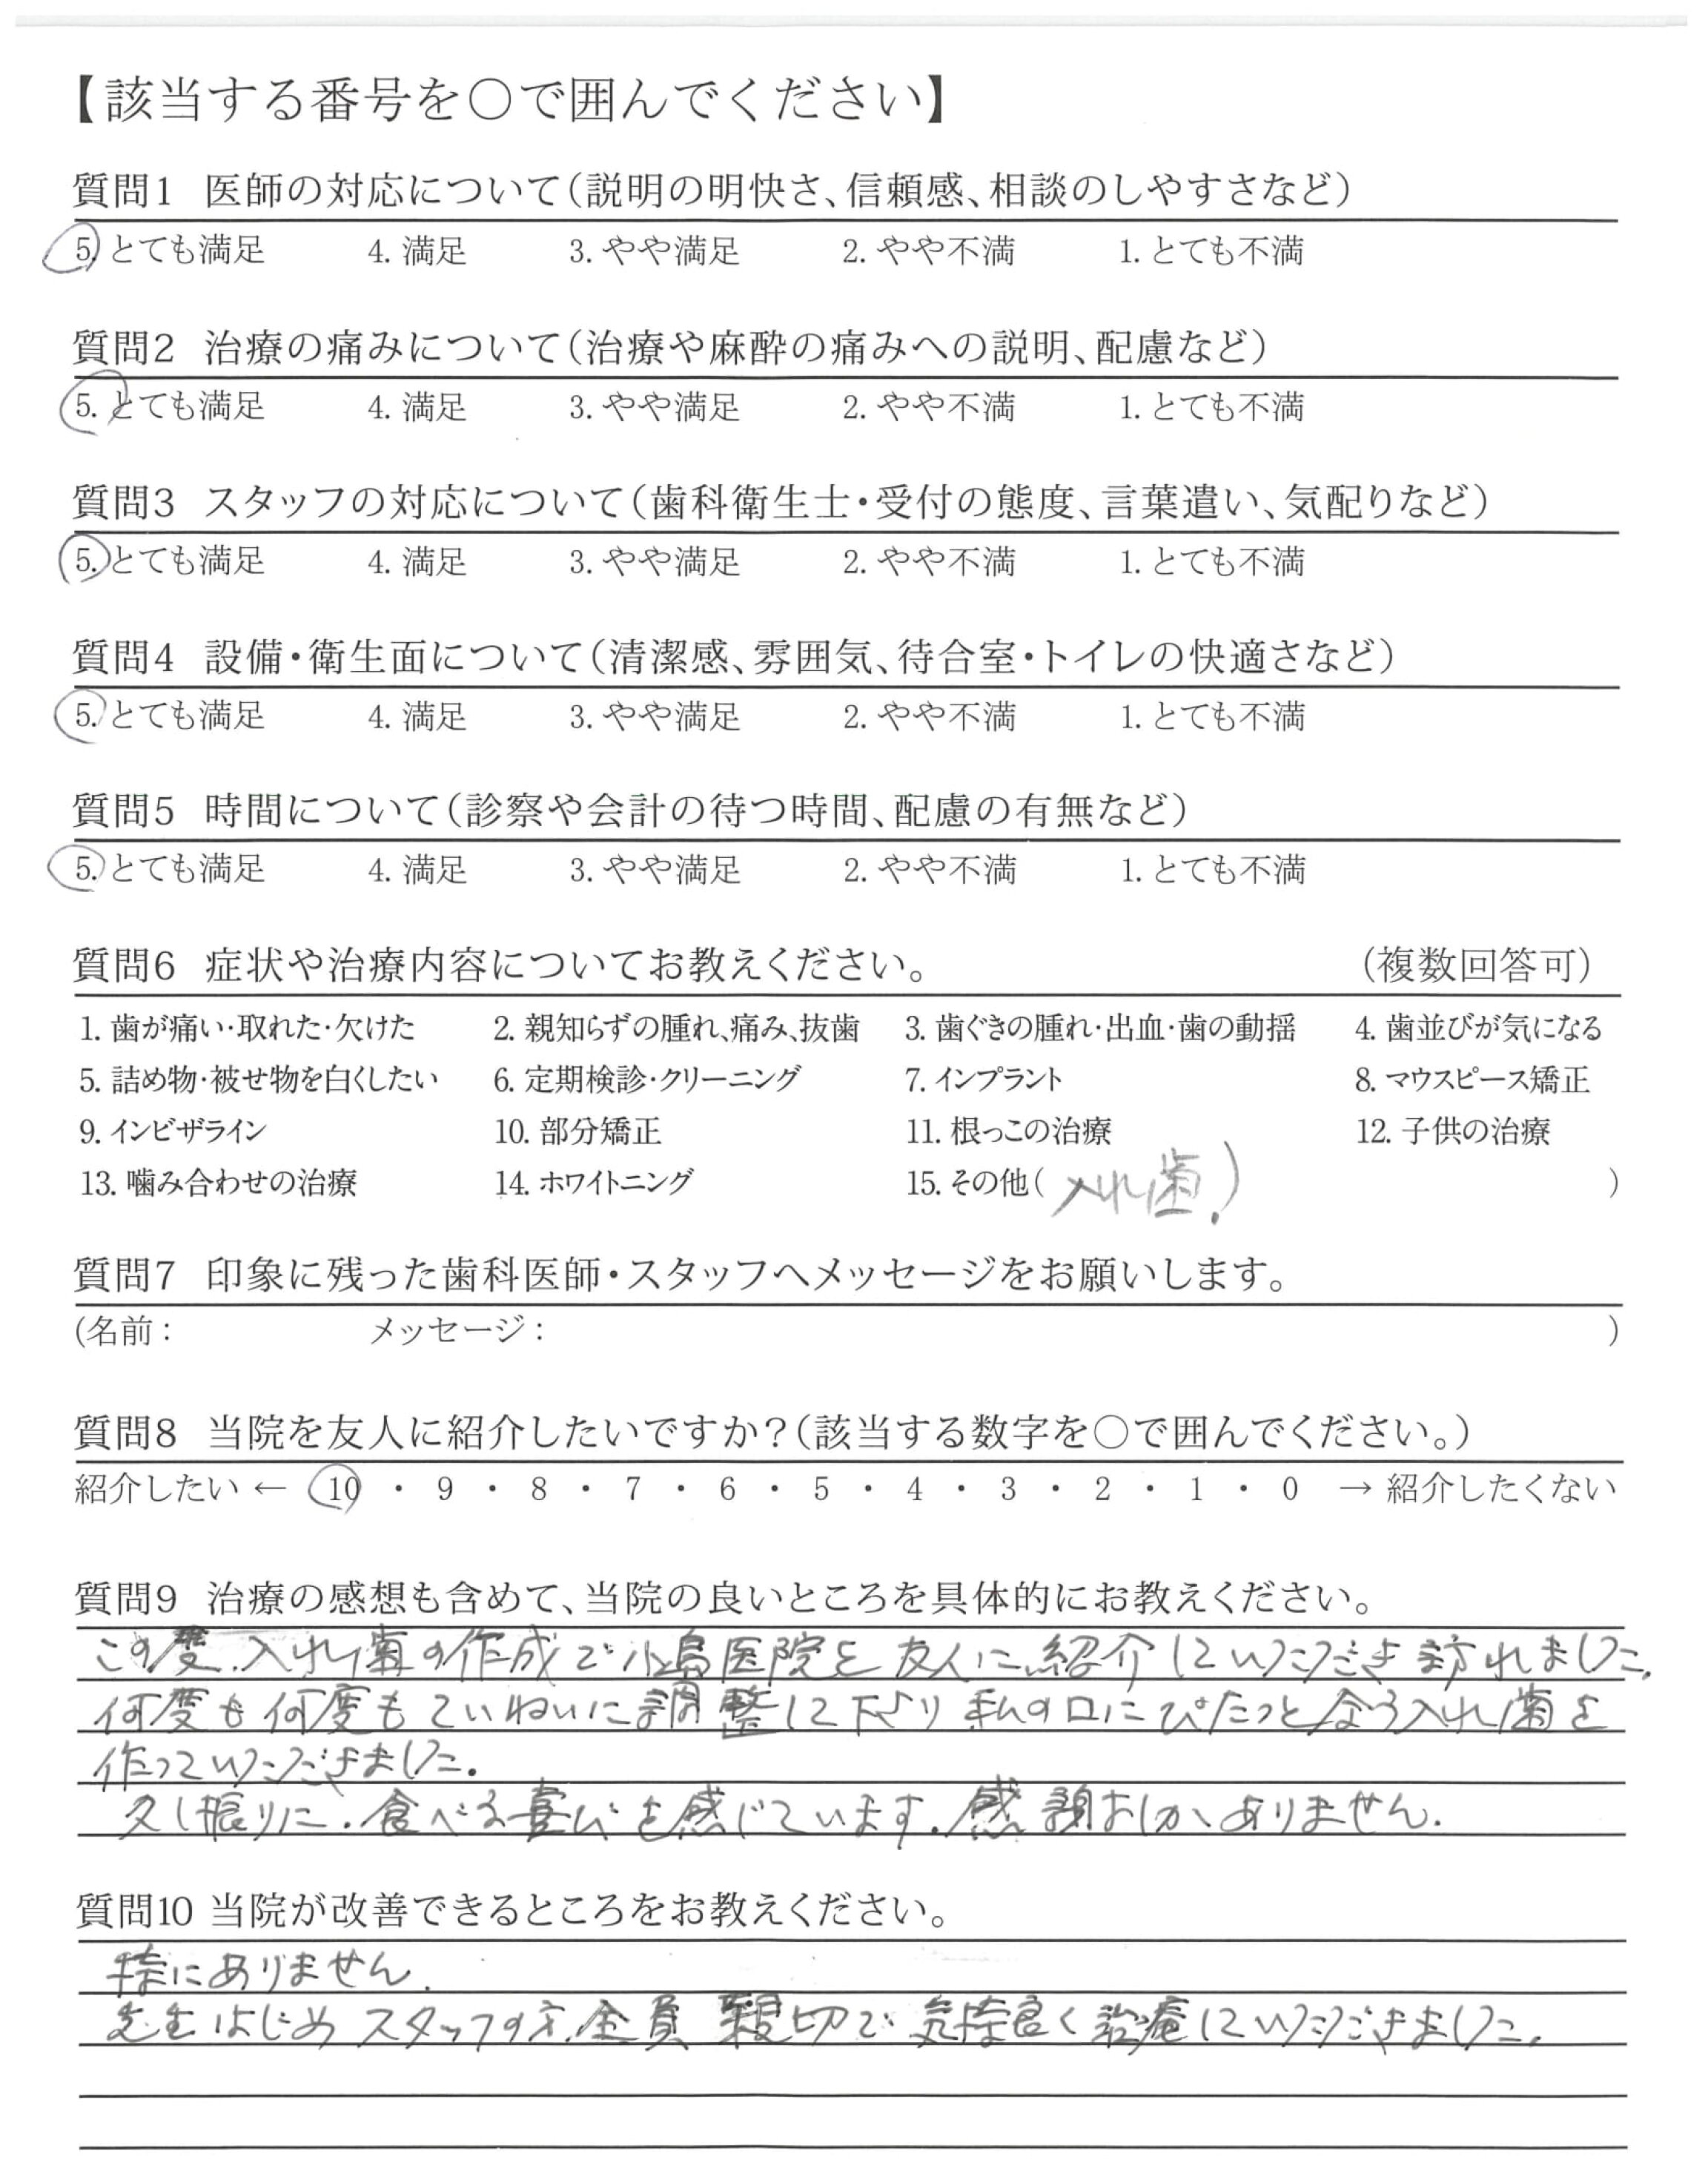 【該当する番号を○で囲んでください】
質問1 医師の対応について(説明の明快さ、信頼感、相談のしやすさなど)
5. とても満足 4. 満足 3. やや満足 2. やや不満 1. とても不満
質問2 治療の痛みについて(治療や麻酔の痛みへの説明、配慮など)
5. とても満足 4. 満足 3. やや満足 2. やや不満 1. とても不満
質問3 スタッフの対応について(歯科衛生士・受付の態度、言葉遣い、気配りなど)
5. とても満足 4. 満足 3. やや満足 2. やや不満 1. とても不満
質問4 設備・衛生面について(清潔感、雰囲気、待合室・トイレの快適さなど)
5. とても満足 4. 満足 3. やや満足 2. やや不満 1. とても不満
質問5 時間について(診察や会計の待つ時間、配慮の有無など)
5. とても満足 4. 満足 3. やや満足 2. やや不満 1. とても不満
質問6 症状や治療内容についてお教えください。 (複数回答可)
1. 歯が痛い・取れた・欠けた 2. 親知らずの腫れ、痛み、抜歯 3. 歯ぐきの腫れ・出血・歯の動揺 4. 歯並びが気になる
5. 詰め物・被せ物を白くしたい 6. 定期検診・クリーニング 7. インプラント 8. マウスピース矯正
9. インビザライン 10. 部分矯正 11. 根っこの治療 12. 子供の治療
13. 噛み合わせの治療 14. ホワイトニング 15. その他( 入れ歯.) )
質問7 印象に残った歯科医師・スタッフへメッセージをお願いします。
(名前: メッセージ: )
質問8 当院を友人に紹介したいですか?(該当する数字を○で囲んでください。)
紹介したい ← 10 ・ 9 ・ 8 ・ 7 ・ 6 ・ 5 ・ 4 ・ 3 ・ 2 ・ 1 ・ 0 → 紹介したくない
質問9 治療の感想も含めて、当院の良いところを具体的にお教えください。
この度、入れ歯の作成で小島医院を友人に紹介していただき訪れました。
何度も何度もていねいに調整して下さり私の口にぴたっと合う入れ歯を
作っていただきました。
久し振りに、食べる喜びを感じています。感謝しかありません.
質問10 当院が改善できるところをお教えください。
特にありません.
先生はじめスタッフの方、全員親切で気持良く治療していただきました.